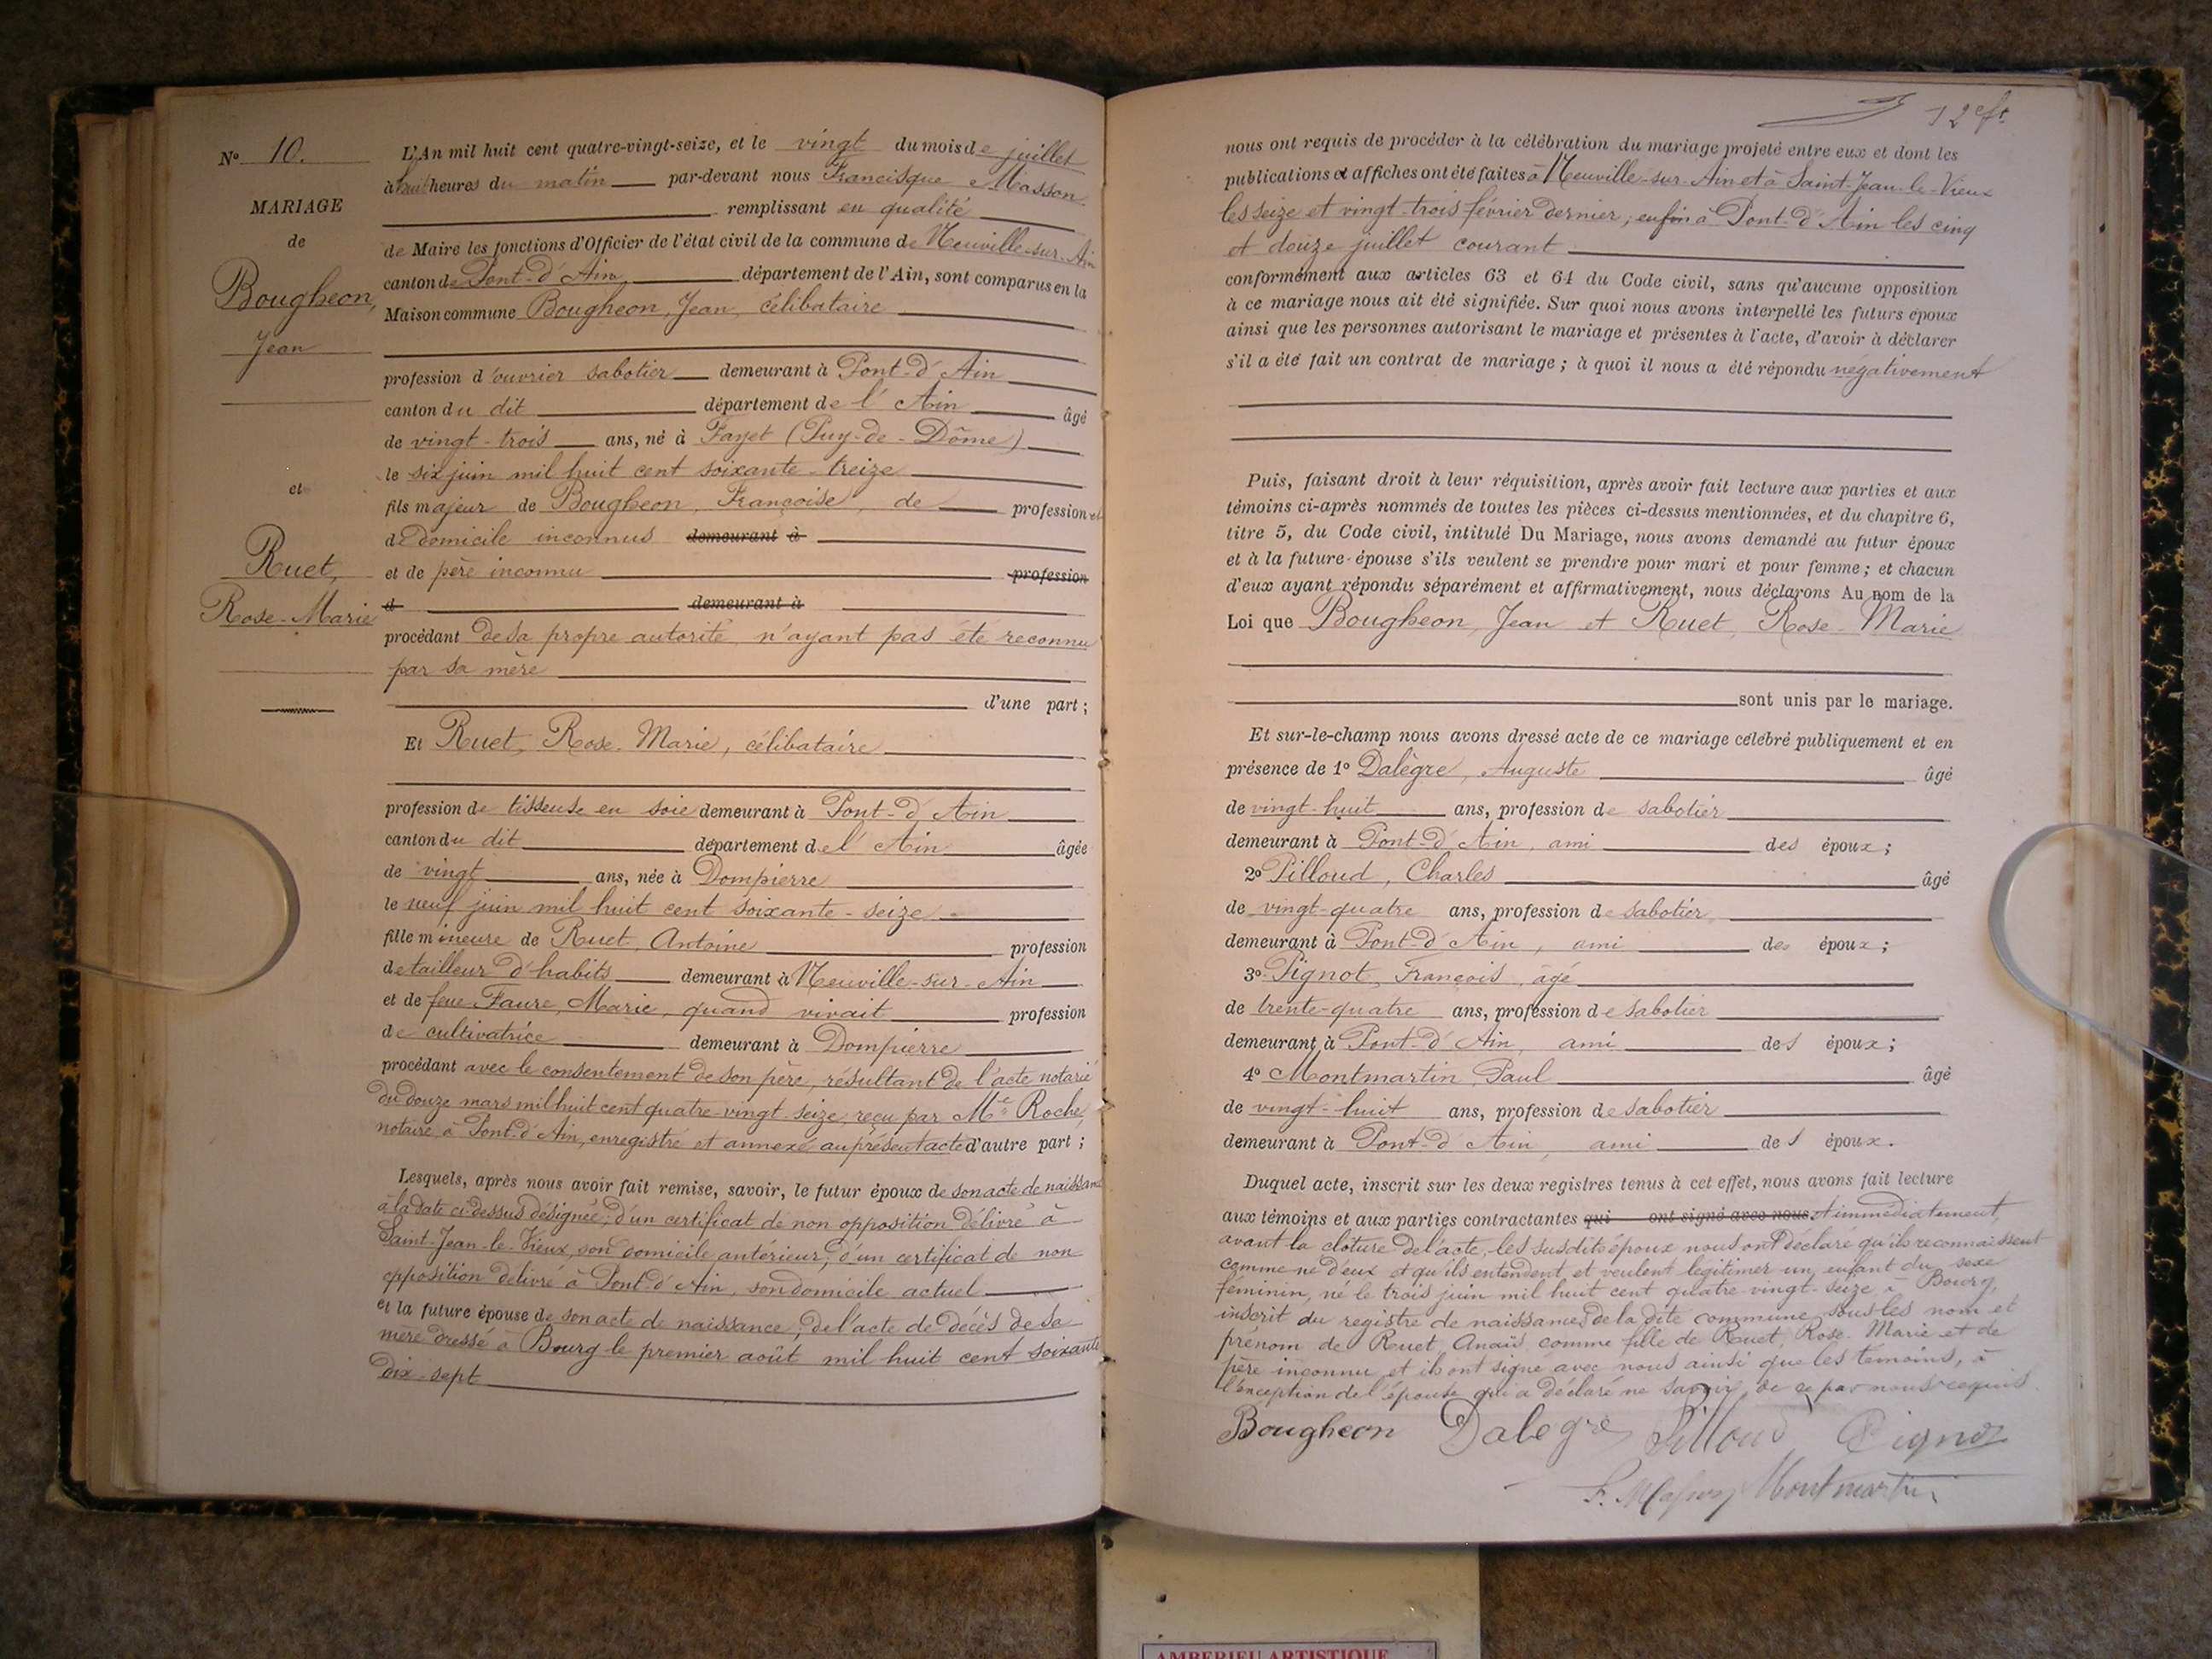 N° 10.
MARIAGE
de
Bougheon,
Jean
et
Ruet,
Rose-Marie
L'An mil huit cent quatre-vingt-seize, et le vingt du mois de juillet
à huit heures du matin par-devant nous Francisque Masson
remplissant en qualité
de Maire les fonctions d'Officier de l'état civil de la commune de Neuville-sur-Ain
canton de Pont-d'Ain département de l'Ain, sont comparus en la
Maison commune Bougheon, Jean, célibataire
profession d'ouvrier sabotier demeurant à Pont-d'Ain
canton du dit département de l'Ain âgé
de vingt-trois ans, né à Fayet (Puy-de-Dôme)
le six juin mil huit cent soixante-treize
fils majeur de Bougheon, Françoise, de profession et
de domicile inconnus demeurant à
et de père inconnu profession
d demeurant à
procédant de sa propre autorité, n'ayant pas été reconnu
par sa mère
d'une part ;
Et Ruet, Rose-Marie, célibataire
profession de tisseuse en soie demeurant à Pont-d'Ain
canton du dit département de l'Ain âgée
de vingt ans, née à Dompierre
le neuf juin mil huit cent soixante-seize
fille mineure de Ruet, Antoine profession
de tailleur d'habits demeurant à Neuville-sur-Ain
et de feue Faure, Marie, quand vivait profession
de cultivatrice demeurant à Dompierre
procédant avec le consentement de son père, résultant de l'acte notarié
du douze mars mil huit cent quatre-vingt seize, reçu par Me Roche,
notaire à Pont-d'Ain, enregistré et annexé au présent acte d'autre part ;
Lesquels, après nous avoir fait remise, savoir, le futur époux de son acte de naissance
à la date ci-dessus désignée ; d'un certificat de non opposition délivré à
Saint-Jean-le-Vieux, son domicile antérieur ; d'un certificat de non
opposition délivré à Pont-d'Ain, son domicile actuel
et la future épouse de son acte de naissance ; de l'acte de décès de sa
mère dressé à Bourg le premier août mil huit cent soixante
dix-sept
12e ft.
nous ont requis de procéder à la célébration du mariage projeté entre eux et dont les
publications et affiches ont été faites à Neuville-sur-Ain et à Saint-Jean-le-Vieux
les seize et vingt-trois février dernier ; enfin à Pont-d'Ain les cinq
et douze juillet courant
conformément aux articles 63 et 64 du Code civil, sans qu'aucune opposition
à ce mariage nous ait été signifiée. Sur quoi nous avons interpellé les futurs époux
ainsi que les personnes autorisant le mariage et présentes à l'acte, d'avoir à déclarer
s'il a été fait un contrat de mariage ; à quoi il nous a été répondu négativement
Puis, faisant droit à leur réquisition, après avoir fait lecture aux parties et aux
témoins ci-après nommés de toutes les pièces ci-dessus mentionnées, et du chapitre 6,
titre 5, du Code civil, intitulé Du Mariage, nous avons demandé au futur époux
et à la future-épouse s'ils veulent se prendre pour mari et pour femme ; et chacun
d'eux ayant répondu séparément et affirmativement, nous déclarons Au nom de la
Loi que Bougheon, Jean et Ruet, Rose-Marie
sont unis par le mariage.
Et sur-le-champ nous avons dressé acte de ce mariage célébré publiquement et en
présence de 1° Dalègre, Auguste âgé
de vingt-huit ans, profession de sabotier
demeurant à Pont-d'Ain, ami des époux ;
2° Pilloud, Charles âgé
de vingt-quatre ans, profession de sabotier
demeurant à Pont-d'Ain, ami des époux ;
3° Pignot, François, âgé
de trente-quatre ans, profession de sabotier
demeurant à Pont-d'Ain, ami des époux ;
4° Montmartin, Paul âgé
de vingt-huit ans, profession de sabotier
demeurant à Pont-d'Ain, ami des époux.
Duquel acte, inscrit sur les deux registres tenus à cet effet, nous avons fait lecture
aux témoins et aux parties contractantes qui ont signé avec nous. Et immédiatement,
avant la clôture de l'acte, les susdits époux nous ont déclaré qu'ils reconnaissent
comme né d'eux et qu'ils entendent et veulent légitimer un enfant du sexe
féminin, né le trois juin mil huit cent quatre-vingt-seize à Bourg,
inscrit du registre de naissances de la dite commune sous les nom et
prénom de Ruet, Anaïs comme fille de Ruet, Rose-Marie et de
père inconnu et ils ont signé avec nous ainsi que les témoins, à
l'exception de l'épouse qui a déclaré ne savoir, de ce par nous requis.
Bougheon Dalegre Pilloud Pignot
F. Masson Montmartin
AMBERIEU ARTISTIQUE